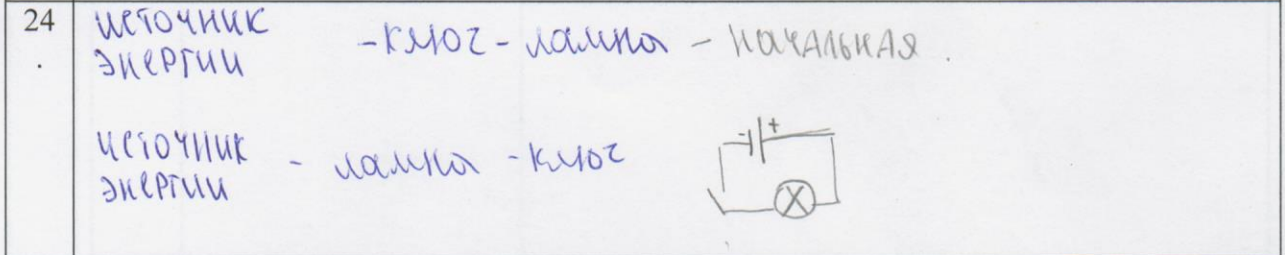 24
.
источник
энергии - ключ - лампа - начальная.
источник
энергии - лампа - ключ
- +